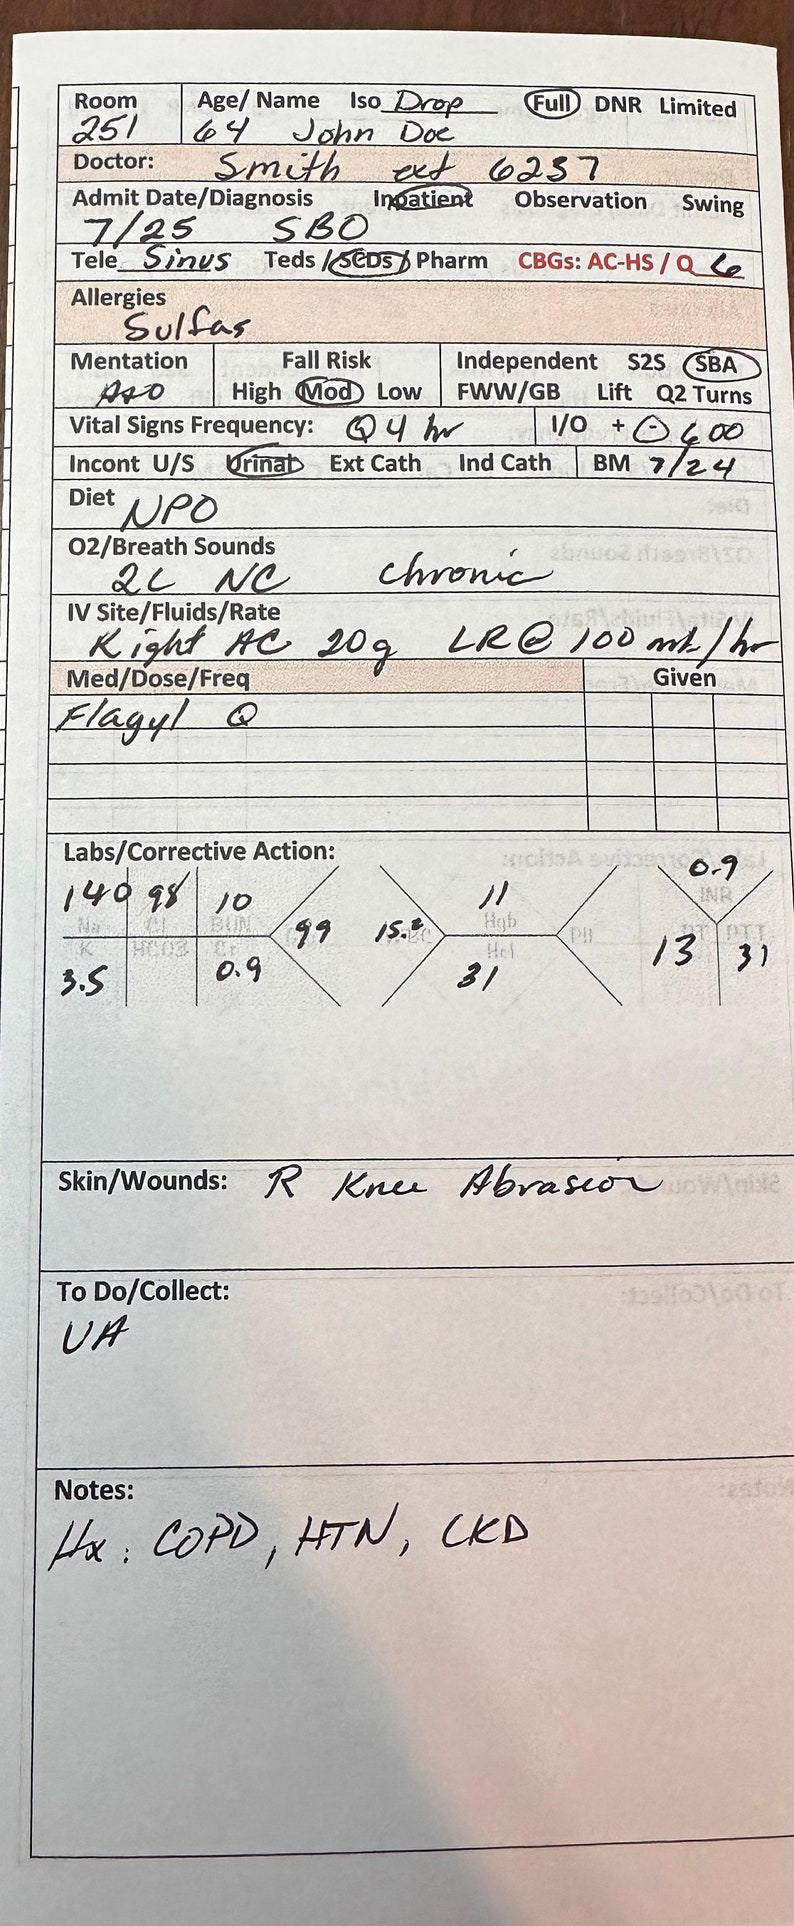 Room Age/ Name Iso Drop Full DNR Limited
251 64 John Doe
Doctor: Smith ext 6237
Admit Date/Diagnosis Inpatient Observation Swing
7/25 SBO
Tele Sinus Teds / SCDs / Pharm CBGs: AC-HS / Q 6
Allergies
Sulfas
Mentation Fall Risk Independent S2S SBA
A+O High Mod Low FWW/GB Lift Q2 Turns
Vital Signs Frequency: Q 4 hr I/O + - 600
Incont U/S Urinal Ext Cath Ind Cath BM 7/24
Diet NPO
O2/Breath Sounds
2L NC chronic
IV Site/Fluids/Rate
Right AC 20g LR @ 100 mL/hr
Med/Dose/Freq Given
Flagyl Q
Labs/Corrective Action:
0.9
140 98 10 11 INR
Na Cl BUN 99 15.2 Hgb
K HCO3 Cr Hct Plt 13 31
3.5 0.9 31
Skin/Wounds: R Knee Abrasion
To Do/Collect:
UA
Notes:
Hx: COPD, HTN, CKD